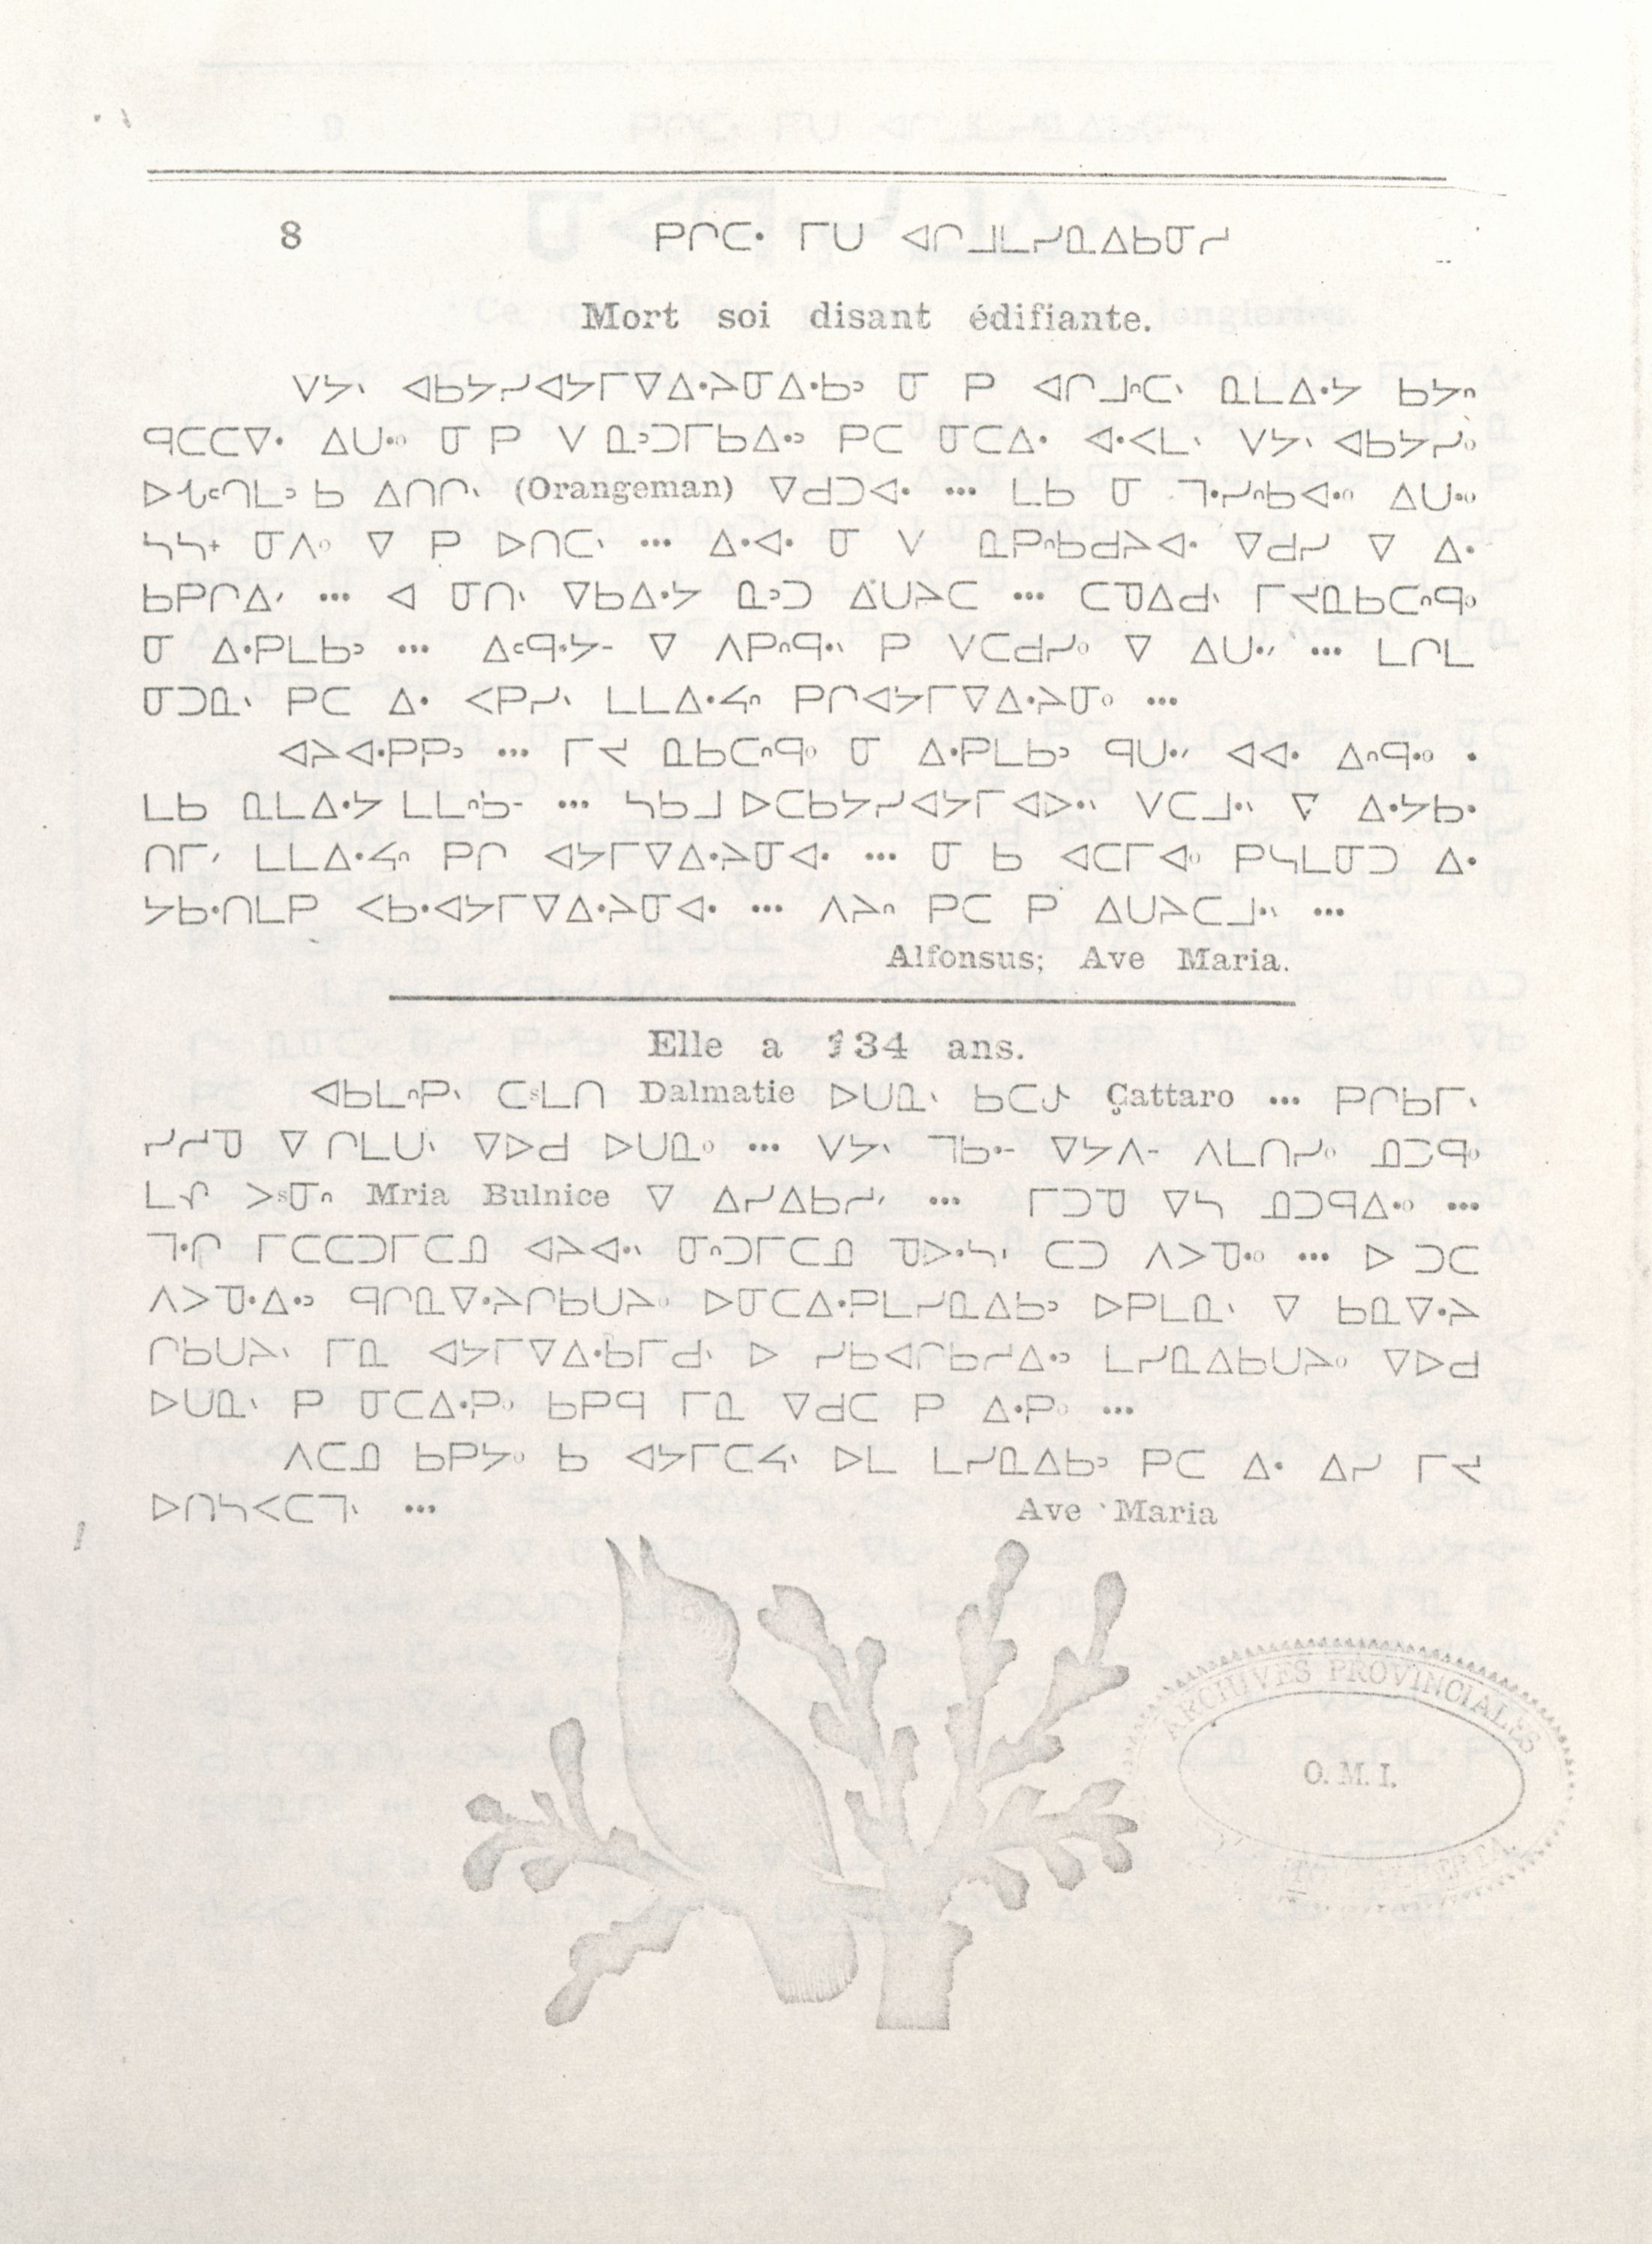 8 ᑭᒋᑕᐧ ᒥᑌ ᐊᒋᒧᒪᓯᓇᐃᑲᓂᓯ
Mort soi disant édifiante.
ᐯᔭᐠ ᐊᑲᔭᓯᐊᔭᒥᐁᐃᐧᔨᓂᐃᐧᑲᐣ ᓂ ᑭ ᐊᒋᒧᐢᑕᐠ ᓇᒪᐃᐧᔭ ᑲᔭᐢ
ᑫᑕᑕᐁᐧ ᐃᑌᐧᐤ ᓂ ᑭ ᐯ ᓇᐣᑐᒥᑲᐃᐧᐣ ᑭᑕ ᓂᑕᐃᐧ ᐊᐧᐸᒪᐠ ᐯᔭᐠ ᐊᑲᔭᓯᐤ
(Orangeman) ᐁᑯᑐᐊᐧ ... ᒪᑲ ᓂ ᒣᐧᓯᐢᑲᐊᐧᐤ ᐃᑌᐧᐤ
ᓴᓴᕀ ᓂᐱᐤ ᐁ ᑭ ᐅᑎᑕᐠ ... ᐃᐧᐊᐧ ᓂ ᐯ ᓇᑭᐢᑲᑯᔨᐊᐧ ᐁᑯᓯ ᐁ ᐃᐧ
ᑲᑭᒋᐃᐟ ... ᐊ ᓂᑎᐠ ᐁᑲᐃᐧᔭ ᓇᐣᑐ ᐃᑌᔨᑕ ... ᑕᑊᐃᑯᐠ ᒥᔪᓇᑲᑕᐢᑫᐤ
ᓂ ᐃᐧᑭᒪᑲᐣ ... ᐃᐢᑫᐧᔭᐨ ᐁ ᐱᑭᐢᑫᐧᐠ ᑭ ᐯᑕᑯᓯᐤ ᐁ ᐃᑌᐧᐟ ... ᒪᒋᒪ
ᓂᑐᓇᐠ ᑭᑕ ᐃᐧ ᐸᑭᓯᐠ ᒪᒪᐃᐧᔭᐢ ᑭᒋᐊᔭᒥᐁᐃᐧᔨᓂᐤ ...
ᐊᔨᐊᐧᑭᑭᐣ ... ᒥᔪ ᓇᑲᑕᐢᑫᐤ ᓂ ᐃᐧᑭᒪᑲᐣ ᑫᑌᐧᐟ ᐊᐊᐧ ᐃᐢᑫᐧᐤ .
ᒪᑲ ᓇᒪᐃᐧᔭ ᒪᒪᐢᑲᐨ ... ᓴᑲᒧ ᐅᑕᑲᔭᓯᐊᔭᒥᐊᐅᐧᐠ ᐯᑕᒧᐧᐠ ᐁ ᐃᐧᔭᑲᐧ
ᑎᒥᐟ ᒪᒪᐃᐧᔭᐢ ᑭᒋ ᐊᔭᒥᐁᐃᐧᔨᓂᐊᐧ ... ᓂ ᑲ ᐊᑕᒥᐊᐤ ᑭᓴᒪᓂᑐ ᐃᐧ
ᔭᑲᐧᑎᒪᑭ ᐸᑲᐧᐊᔭᒥᐁᐃᐧᔨᓂᐊᐧ ... ᐱᔨᐢ ᑭᑕ ᑭ ᐃᑌᔨᑕᒧᐧᐠ ...
Alfonsus; Ave Maria.
Elle a 134 ans.
ᐊᑲᒪᐢᑭᐠ ᑕᓪᒪᑎ Dalmatie ᐅᑌᓇᐠ ᑲᑕᕒᐤ Çattaro ... ᑭᒋᑲᒥᐠ
ᓯᓯᑊ ᐁ ᒋᒪᑌᐠ ᐁᐅᑯ ᐅᑌᓇᐤ ... ᐯᔭᐠ ᒣᑲᐧᐨ ᐁᔭᐱᐨ ᐱᒪᑎᓯᐤ ᓄᑐᑫᐤ
Mria Bulnice ᐁ ᐃᓯᐃᑲᓯᐟ ... ᒥᑐᓂ ᐁᓴ ᓄᑐᑫᐃᐧᐤ ...
ᒣᐧᒋ ᒥᑕᑕᑐᒥᑕᓄ ᐊᔨᐊᐧᐠ ᓂᐢᑐᒥᑕᓄ ᓀᐅᐧᓴᑊ ᑕᑐ ᐱᐳᓀᐧᐤ ... ᐅ ᑐᑕ
ᐱᐳᓀᐧᐃᐧᐣ ᑫᒋᓇᐁᐧᔨᒋᑲᑌᔨᐤ ᐅᓂᑕᐃᐧᑭᒪᓯᓇᐃᑲᐣ ᐅᑭᒪᓇᐠ ᐁ ᑲᓇᐁᐧᔨ
ᒋᑲᑌᔨᐠ ᒥᓇ ᐊᔭᒥᐁᐃᐧᑲᒥᑯᐠ ᐅ ᓯᑲᐊᒋᑲᓯᐃᐧᐣ ᒪᓯᓇᐃᑲᑌᔨᐤ ᐁᐅᑯ
ᐅᑌᓇᐠ ᑭ ᓂᑕᐃᐧᑭᐤ ᑲᑭᑫ ᒥᓇ ᐁᑯᑕ ᑭ ᐃᐧᑭᐤ ...
ᐱᑕᓄ ᑲᑭᔭᐤ ᑲ ᐊᔭᒥᑕᔭᐠ ᐅᒪ ᒪᓯᓇᐃᑲᐣ ᑭᑕ ᐃᐧ ᐃᓯ ᒥᔪ
ᐅᑎᓴᐸᑕᒣᐠ ...
Ave Maria
ARCHIVES PROVINCIALES
O. M. I.